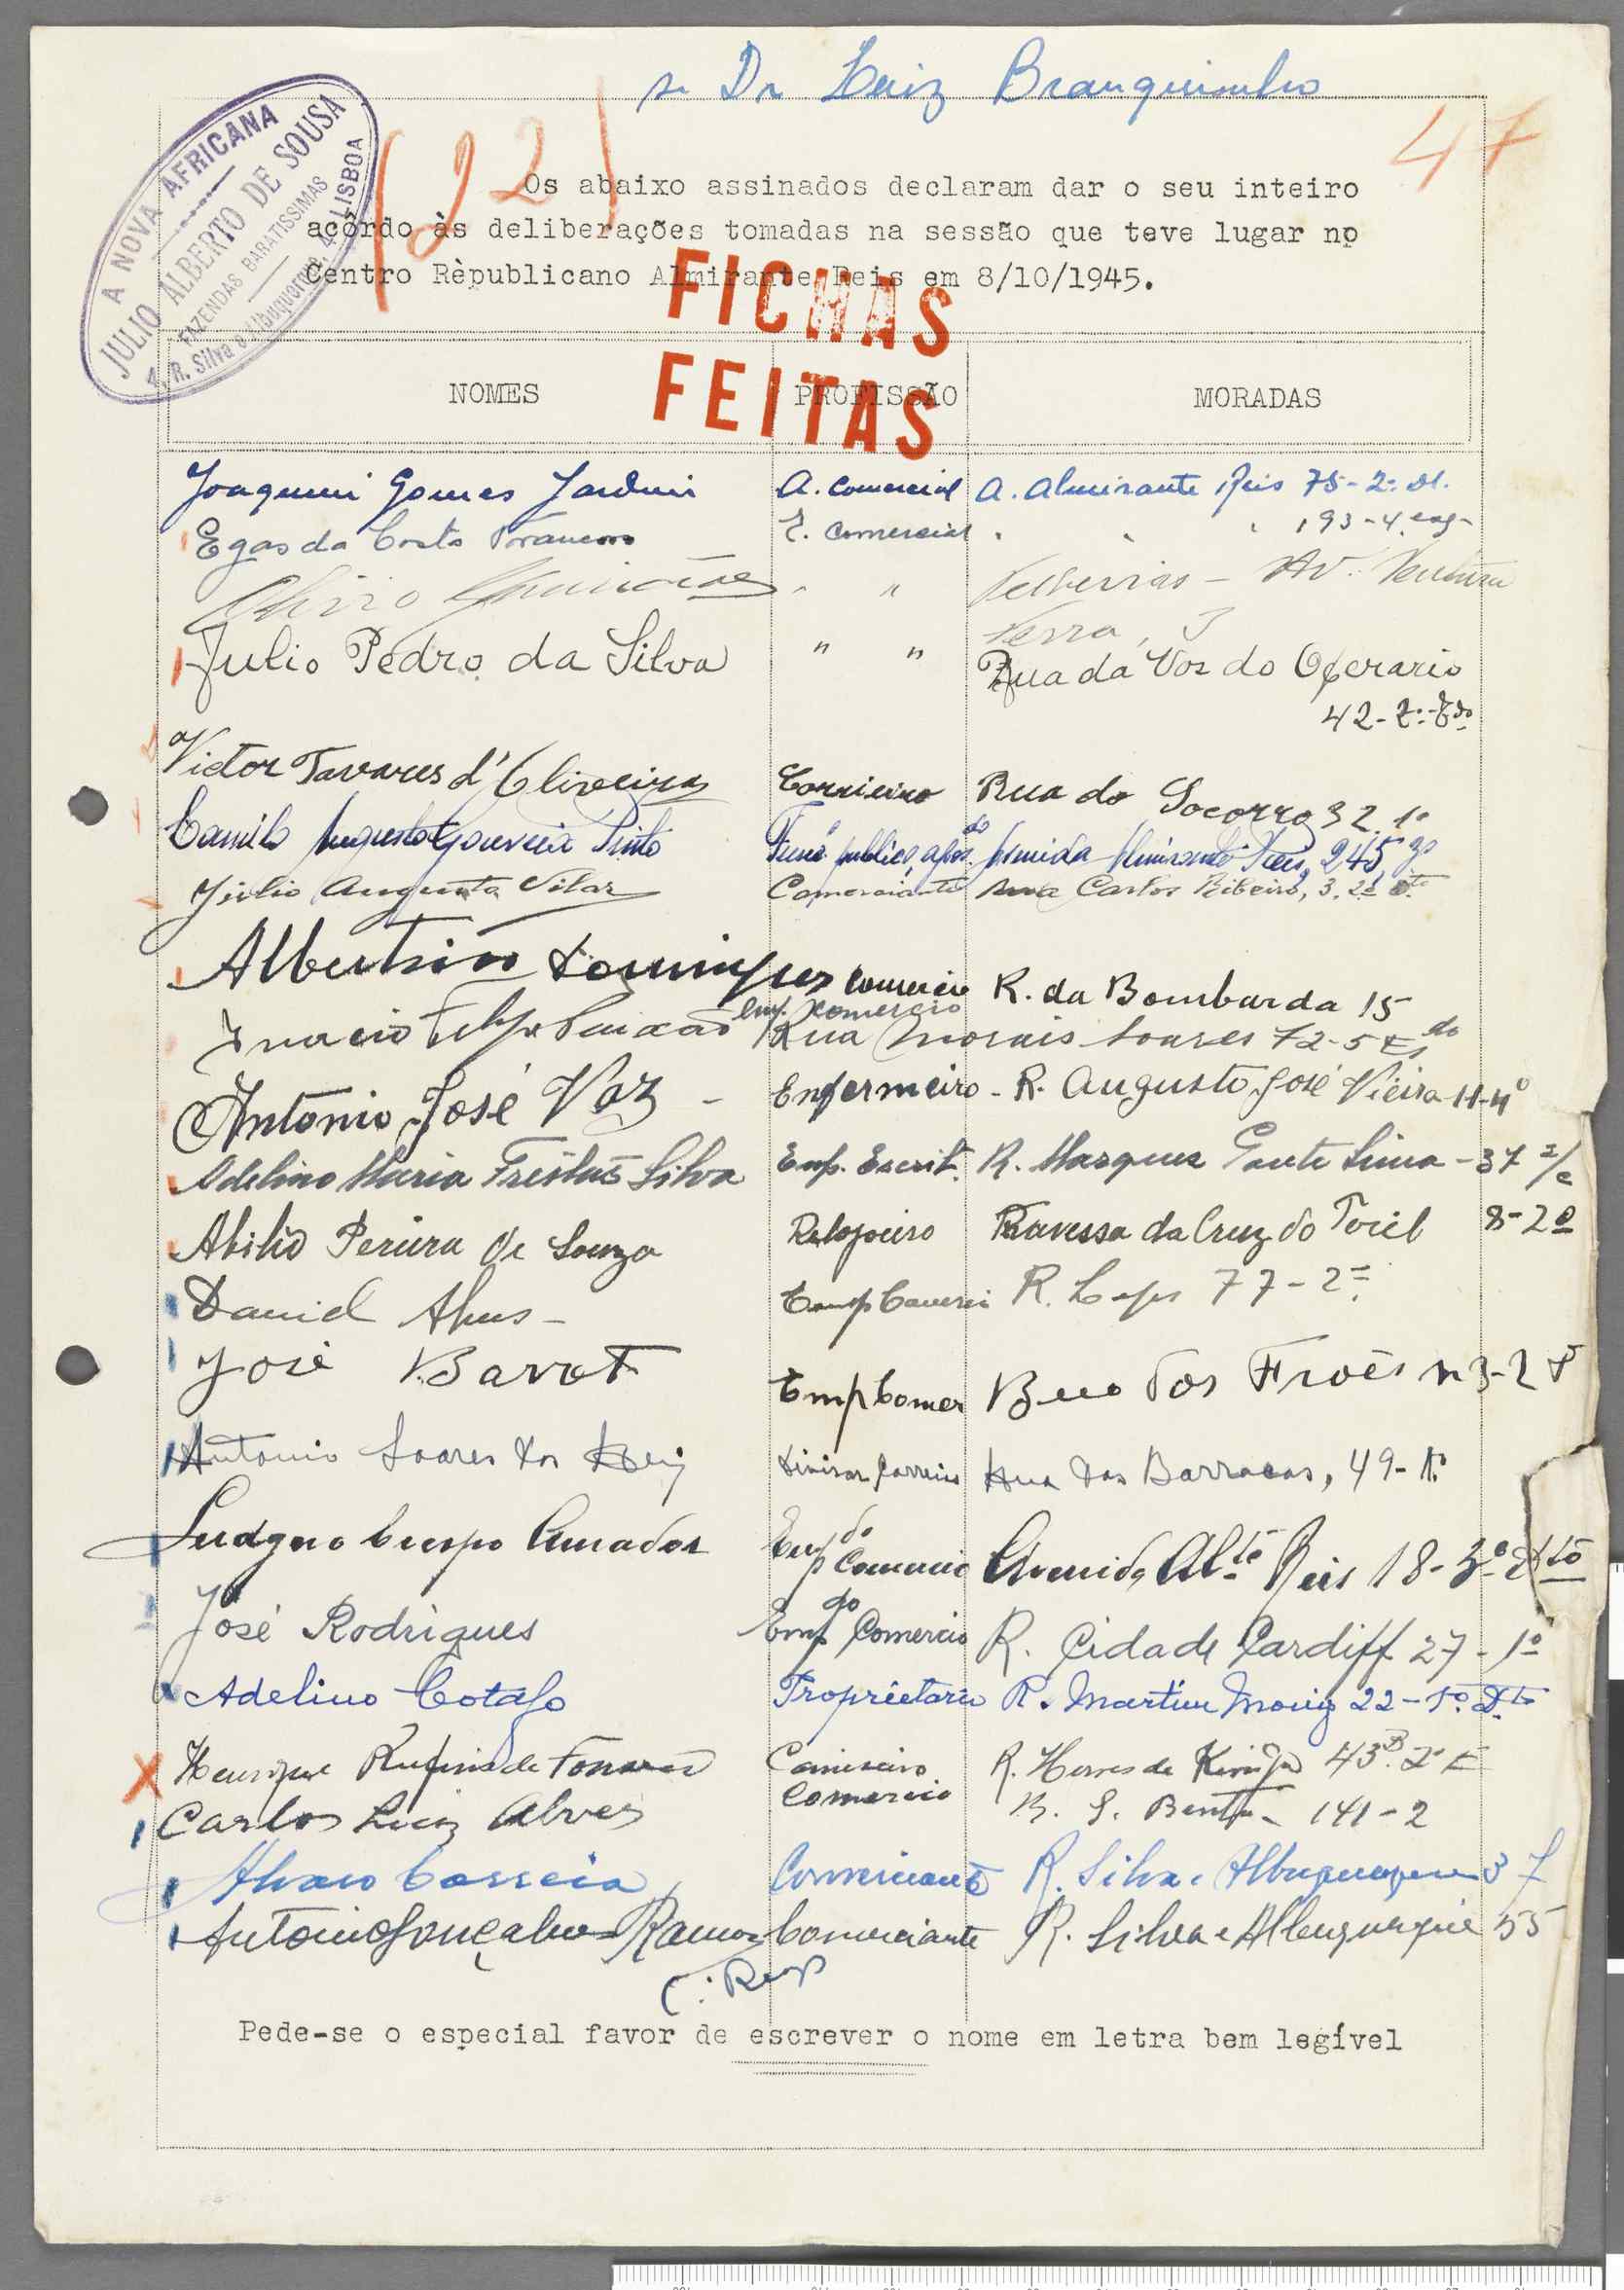 Dr Luiz Branquinho
47
(22)
A NOVA AFRICANA
JULIO ALBERTO DE SOUSA
FAZENDAS BARATISSIMAS
4, R. Silva e Albuquerque, 4 LISBOA
Os abaixo assinados declaram dar o seu inteiro
acôrdo às deliberações tomadas na sessão que teve lugar no
Centro Rèpublicano Almirante Reis em 8/10/1945.
FICHAS
FEITAS
NOMES PROFISSÃO MORADAS
Joaquim Gomes Jardim A. Comercial A. Almirante Reis 75-2º Dt.
Egas da Costa E. Comercial " " " 193-4º esq
Guimarães " " Av. Ventura
Terra, 3
Julio Pedro da Silva " " Rua da Voz do Operario
42-2º-Edo
Victor Tavares d'Oliveira Correeiro Rua do Socorro 32 1º
Camilo Augusto Gouveia Pinto Func. publico apos.do Avenida Almirante Reis, 245
Júlio Augusto Vilar Comerciante Rua Carlos Ribeiro, 3. 2º
Albertino Domingues Comercio R. da Bombarda 15
Inacio Filipe Paixão Emp. Comercio Rua Morais Soares 72-5 Esdo
Antonio José Vaz - Enfermeiro - R. Augusto José Vieira 11-4º
Adelino Maria Freitas Silva Emp. Escrit. R. Marques Ponte Lima - 37 r/c
Abilio Pereira de Souza Relojoeiro Travessa da Cruz do Torel 8-2º
David Alves - Emp Comerci R. Lapa 77-2º
José Barrot Emp Comer Beco dos Froes n 3-2
Antonio Soares dos Reis Rua das Barracas, 49-1º
Ludgero Crespo Amador Empdo Comercio Avenida Alte Reis 18-3º Dto
José Rodrigues Empdo Comercio R. Cidade Cardiff 27-1º
Adelino Cotafo Proprietario R. Martim Moniz 22-1º. Dto
Henrique Rufino da Fonseca Camiseiro R. Herois de Kionga 43B. 2º E
Carlos Luiz Alves Comercio R. S. Bento - 141-2
Alvaro Correia Comerciante R. Silva e Albuquerque 37
Antonio Gonçalves Ramos Comerciante R. Silva e Albuquerque 55
Pede-se o especial favor de escrever o nome em letra bem legível